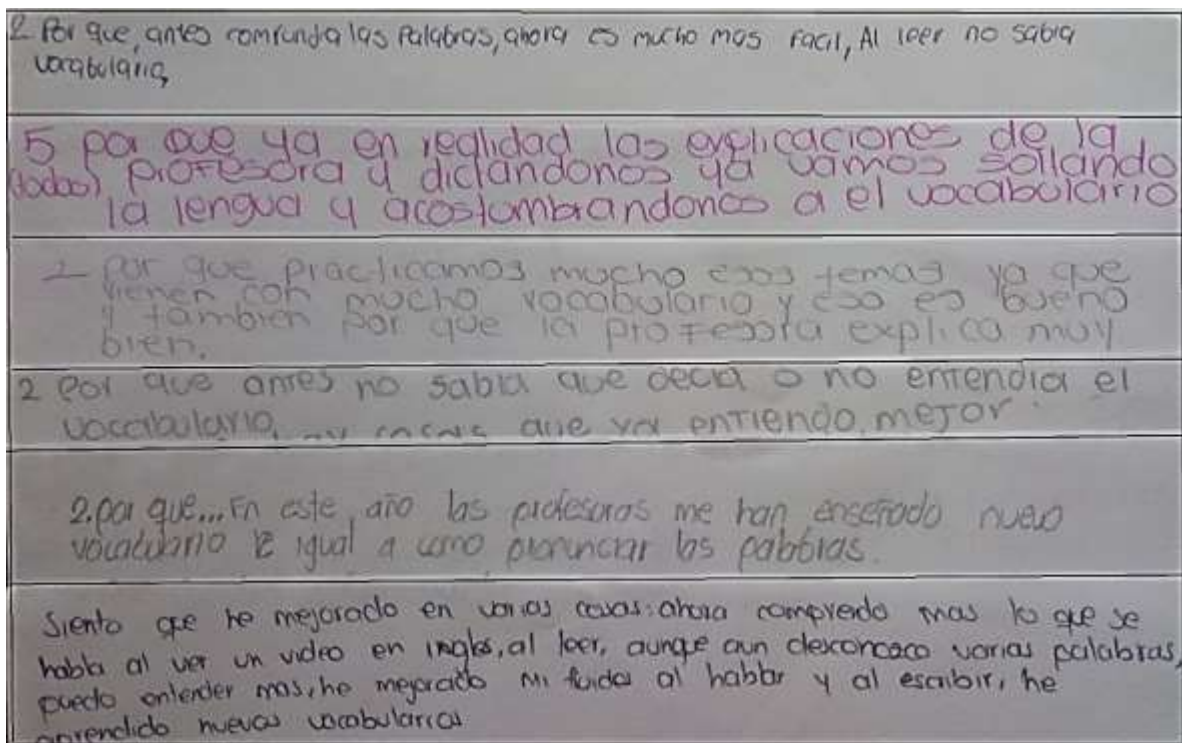 2 Por que, antes comfundia las Palabras, ahora es mucho mas facil, Al leer no sabia
vocabulario,
5 por que ya en realidad las explicaciones de la
(todos) profesora y dictandonos ya vamos soltando
la lengua y acostumbrandonos a el vocabulario
2 por que practicamos mucho esos temas ya que
vienen con mucho vocabulario y eso es bueno
y tambien por que la profesora explica muy
bien.
2 por que antes no sabia que decia o no entendia el
vocabulario, que ya entiendo mejor.
2. por que... En este año las profesoras me han enseñado nuevo
vocabulario e igual a como pronunciar las palabras.
Siento que he mejorado en varias cosas: ahora comprendo mas lo que se
habla al ver un video en ingles, al leer, aunque aun desconozco varias palabras,
puedo entender mas, he mejorado mi fluidez al hablar y al escribir, he
aprendido nuevos vocabularios